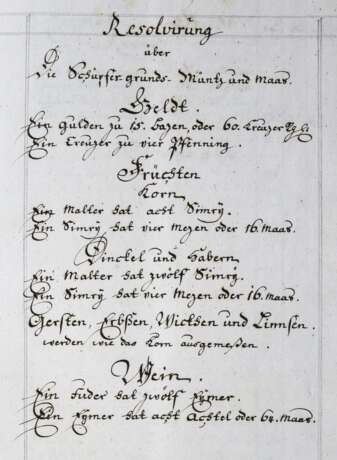 Resolvirung
über
Die Schüpfer grunds- Müntz und Maas.
Geldt.
Ein Gulden zu 15. bazen, oder 60. Creüzer
Ein Creüzer zu vier Pfenning.
Früchten
Korn
Ein Malter hat acht Simrÿ.
Ein Simrÿ hat vier Mezen oder 16. Maas.
Dinckel und Habern
Ein Malter hat zwölf Simrÿ.
Ein Simrÿ hat vier Mezen oder 16. Maas.
Gersten, Erbßen, Wickhen und Linnsen.
werden wie das Korn ausgemessen.
Wein.
Ein Fuder hat zwölf Eÿmer.
Ein Eÿmer hat acht Achtel oder 64. Maas.